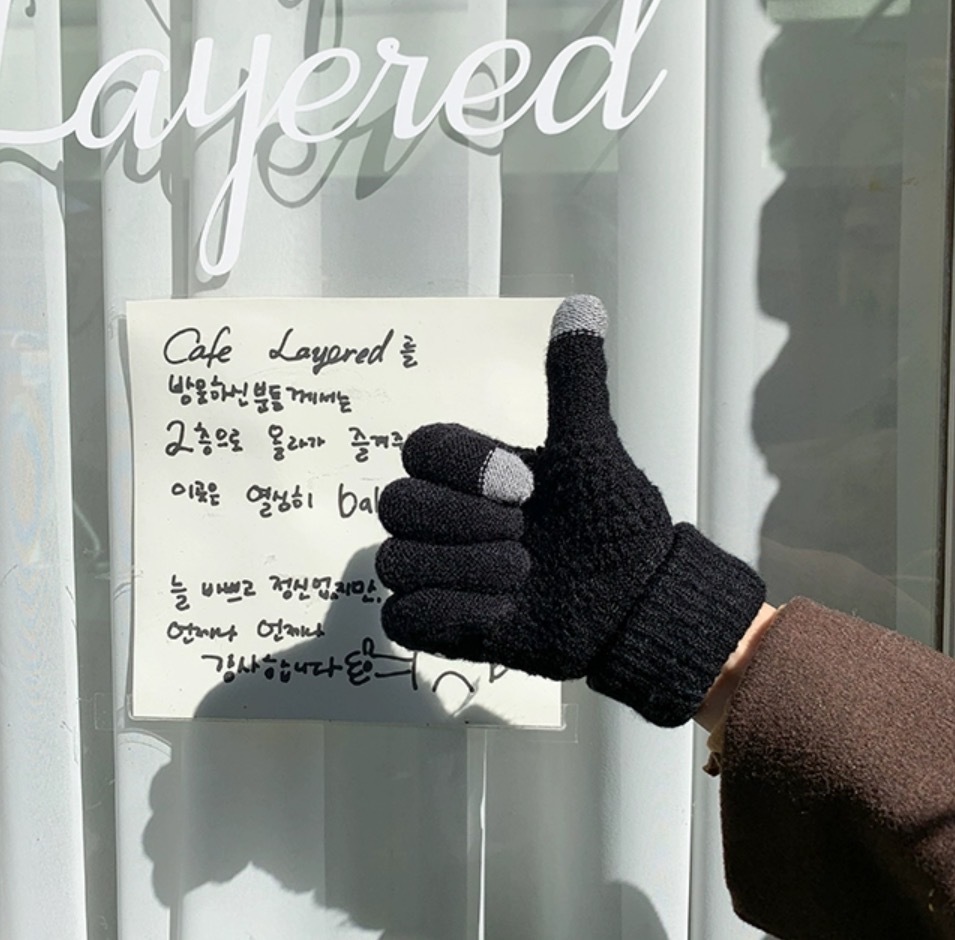 Layered
Cafe Layered를
방문하신분들께서는
2층으로 올라가
이곳은 열심히
늘 바쁘고 정신없지만,
언제나 언제나
감사합니다